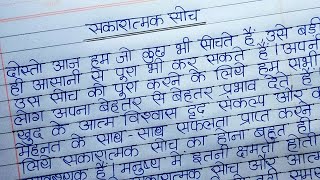 सकारात्मक सोच
दोस्तो आज हम जो कुछ भी सोचते हैं उसे बड़ी
ही आसानी से पूरा भी कर सकते हैं। अपनी
उस सोच को पूरा करने के लिये हम सभी
लोग अपना बेहतर से बेहतर प्रभाव देते हैं
खुद के आत्म विश्वास दृढ संकल्प और क
मेहनत के साथ-साथ सफलता प्राप्त करने
लिये सकारात्मक सोच का होना बहुत ही
है। मनुष्य में इतनी क्षमता होती
सोच और आत्म